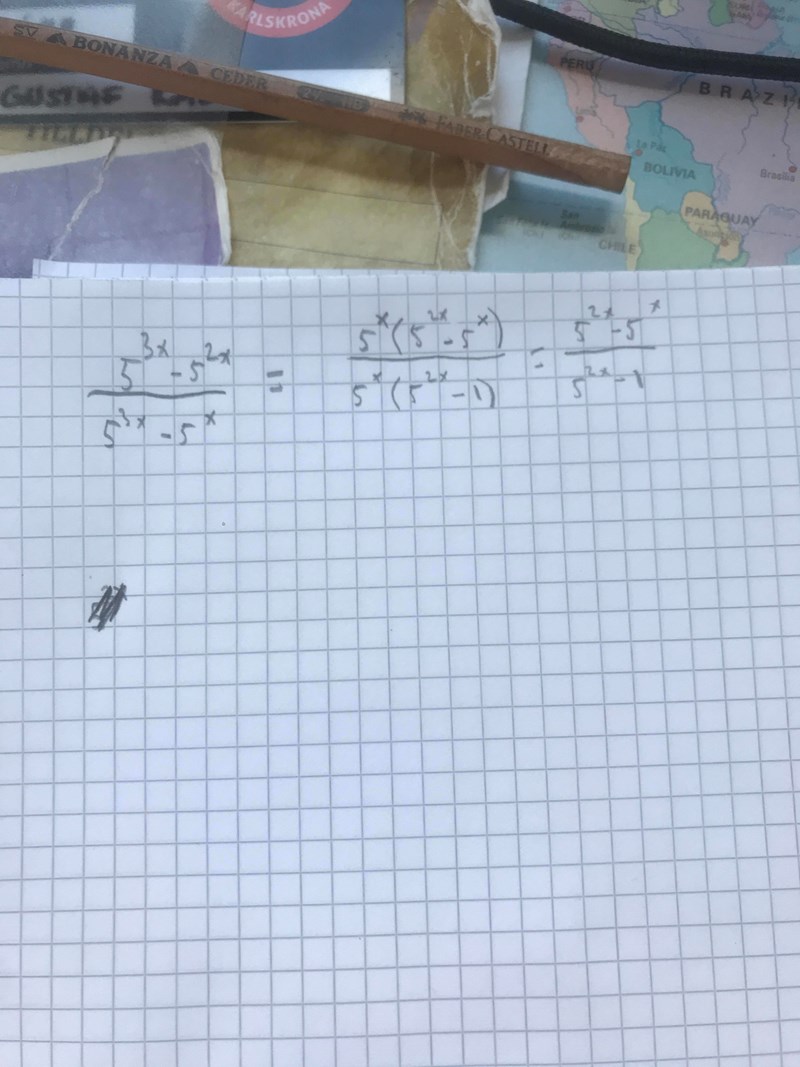 KARLSKRONA
BONANZA CEDER FABER CASTELL
GUSTAF
PERU
BRAZI
La Paz
BOLIVIA
Brasilia
PARAGUAY
CHILE
5^{3x} - 5^{2x} / 5^{3x} - 5^x = 5^x (5^{2x} - 5^x) / 5^x (5^{2x} - 1) = 5^{2x} - 5^x / 5^{2x} - 1